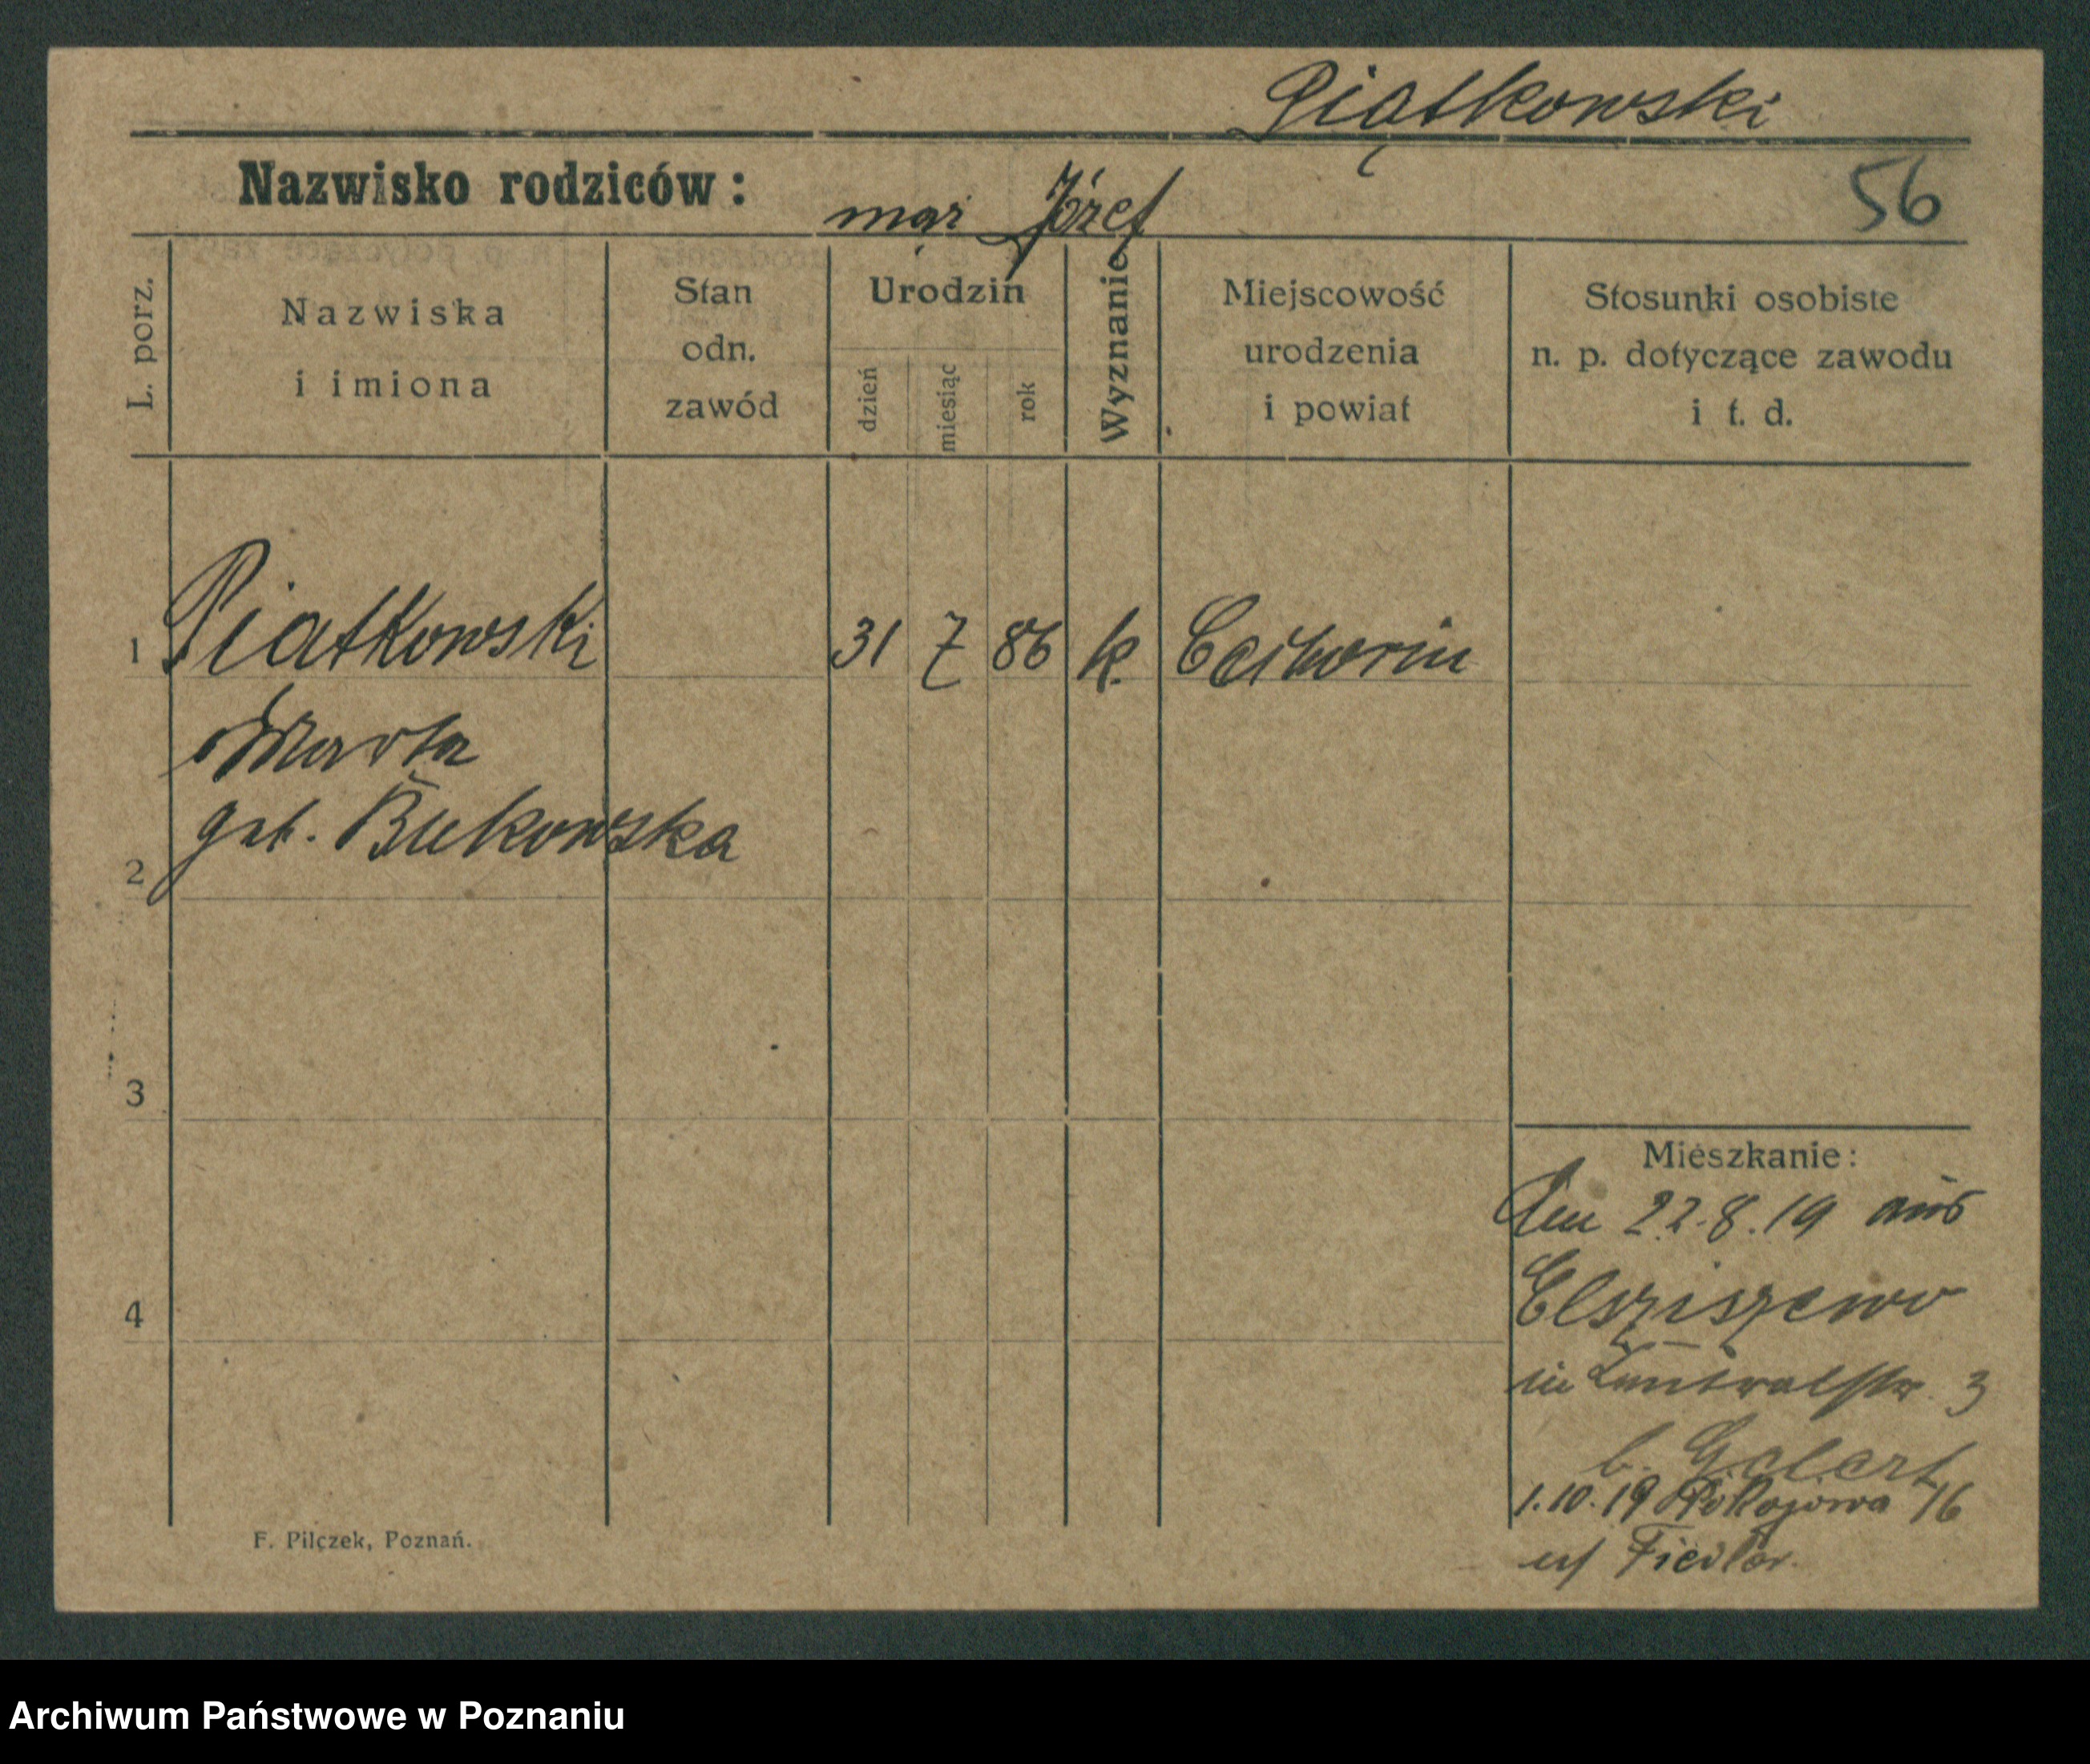 Piątkowski
Nazwisko rodziców:
mąż Józef
56
L. porz.
Nazwiska
i imiona
Stan
odn.
zawód
Urodzin
dzień
miesiąc
rok
Wyznanie
Miejscowość
urodzenia
i powiat
Stosunki osobiste
n. p. dotyczące zawodu
i t. d.
1 Piatkowski 31 7 86 k.
Marta
geb. Bukowska
2
3
4
Mieszkanie:
22.8.19 aus
3
b.
1.10.19 Pokojowa 16
Fiedler
F. Pilczek, Poznań.
Archiwum Państwowe w Poznaniu